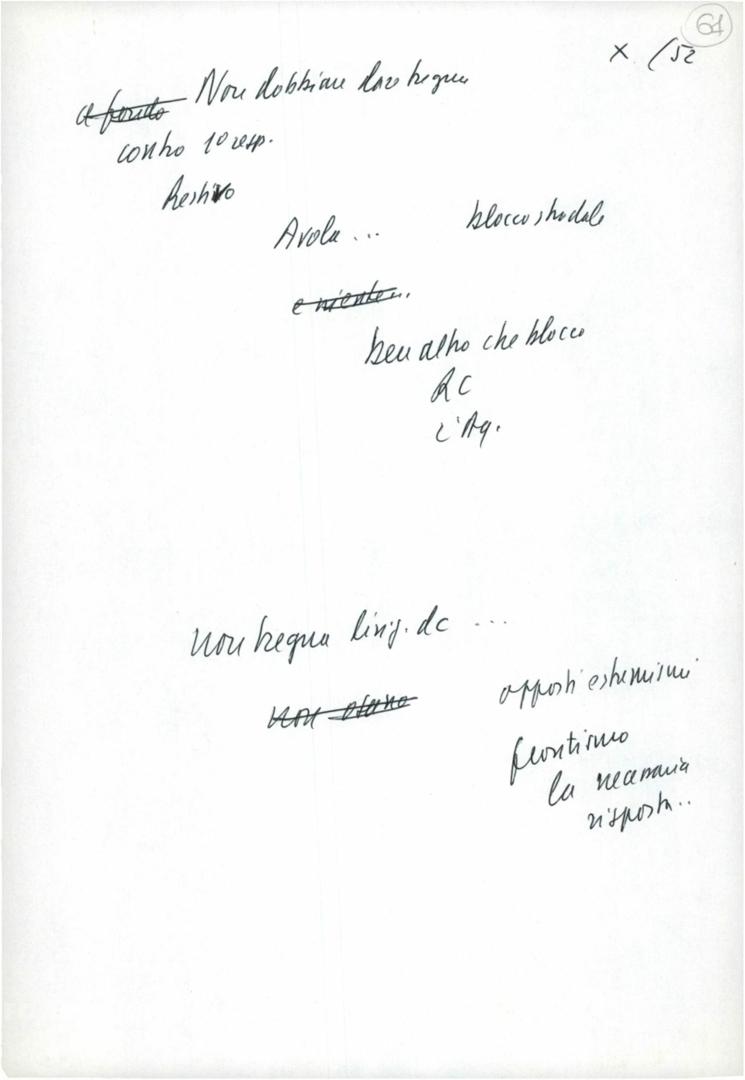 61
X /52
a fondo Non dobbiam dare tregua
contro 1° resp.
Restivo
Avola ... blocco stradale
e niente...
ben altro che blocco
RC
L'Aq.
non tregua ling. dc ...
non osano opposti estremismi
frontismo
la necessaria
risposta..